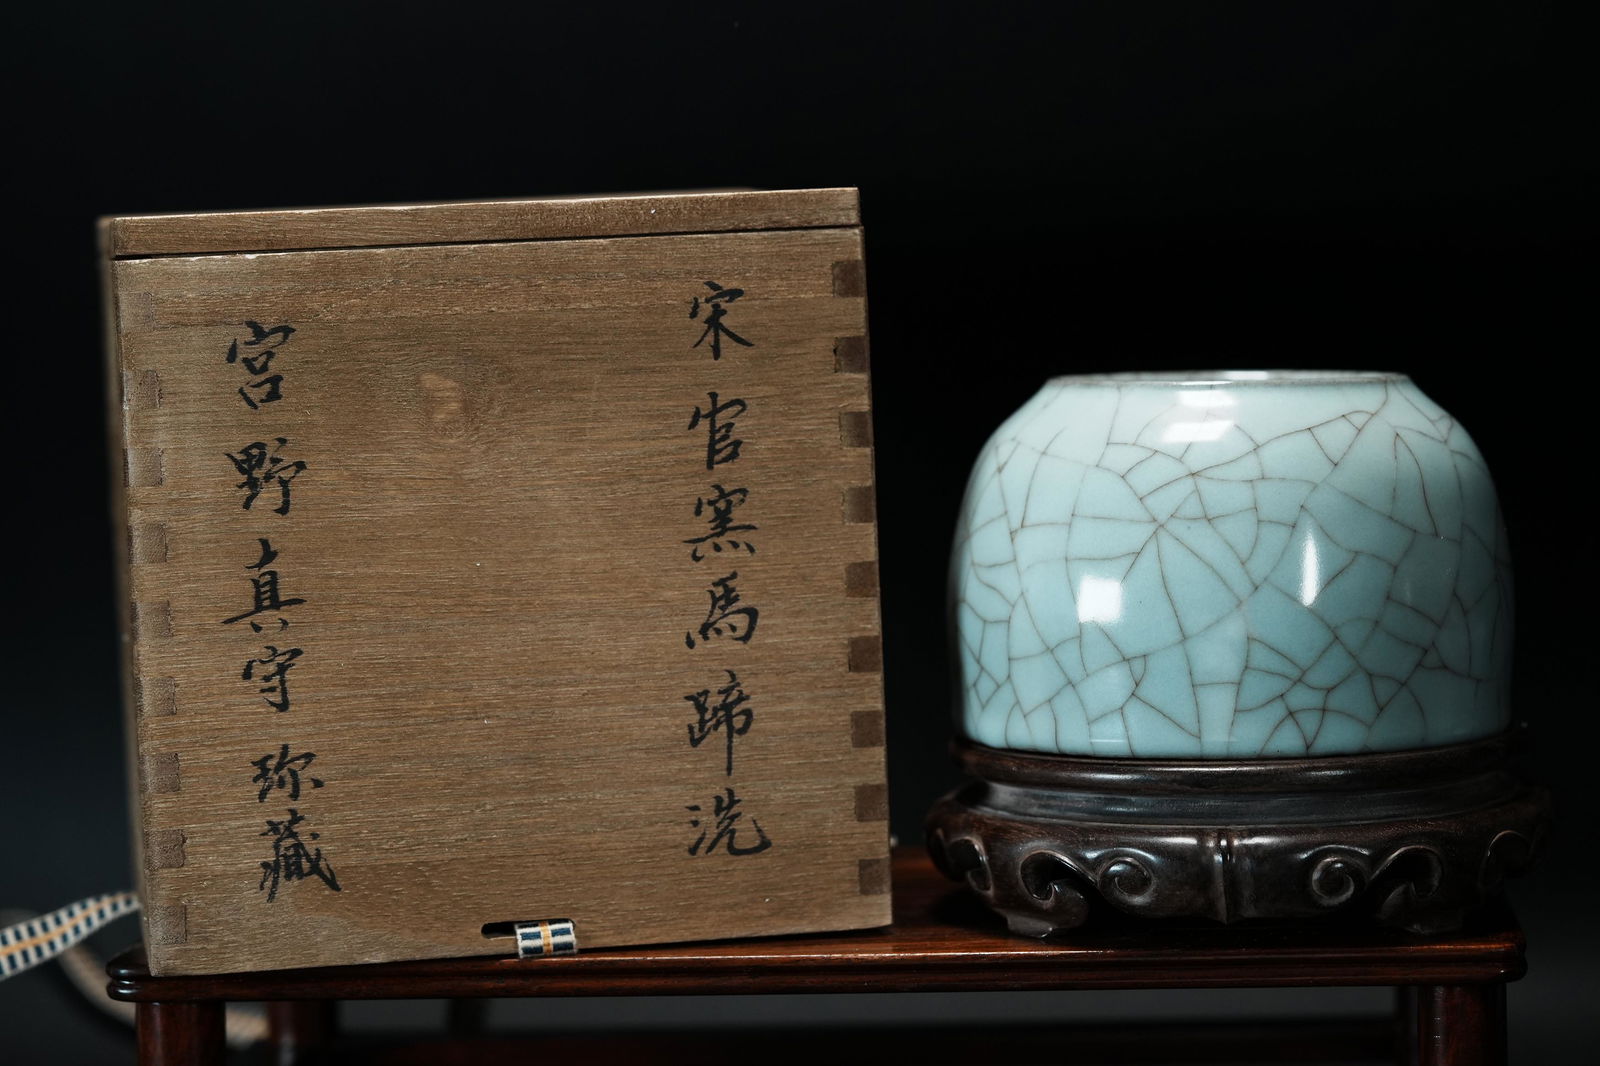 宋官窯馬蹄洗
宮野真守珍藏